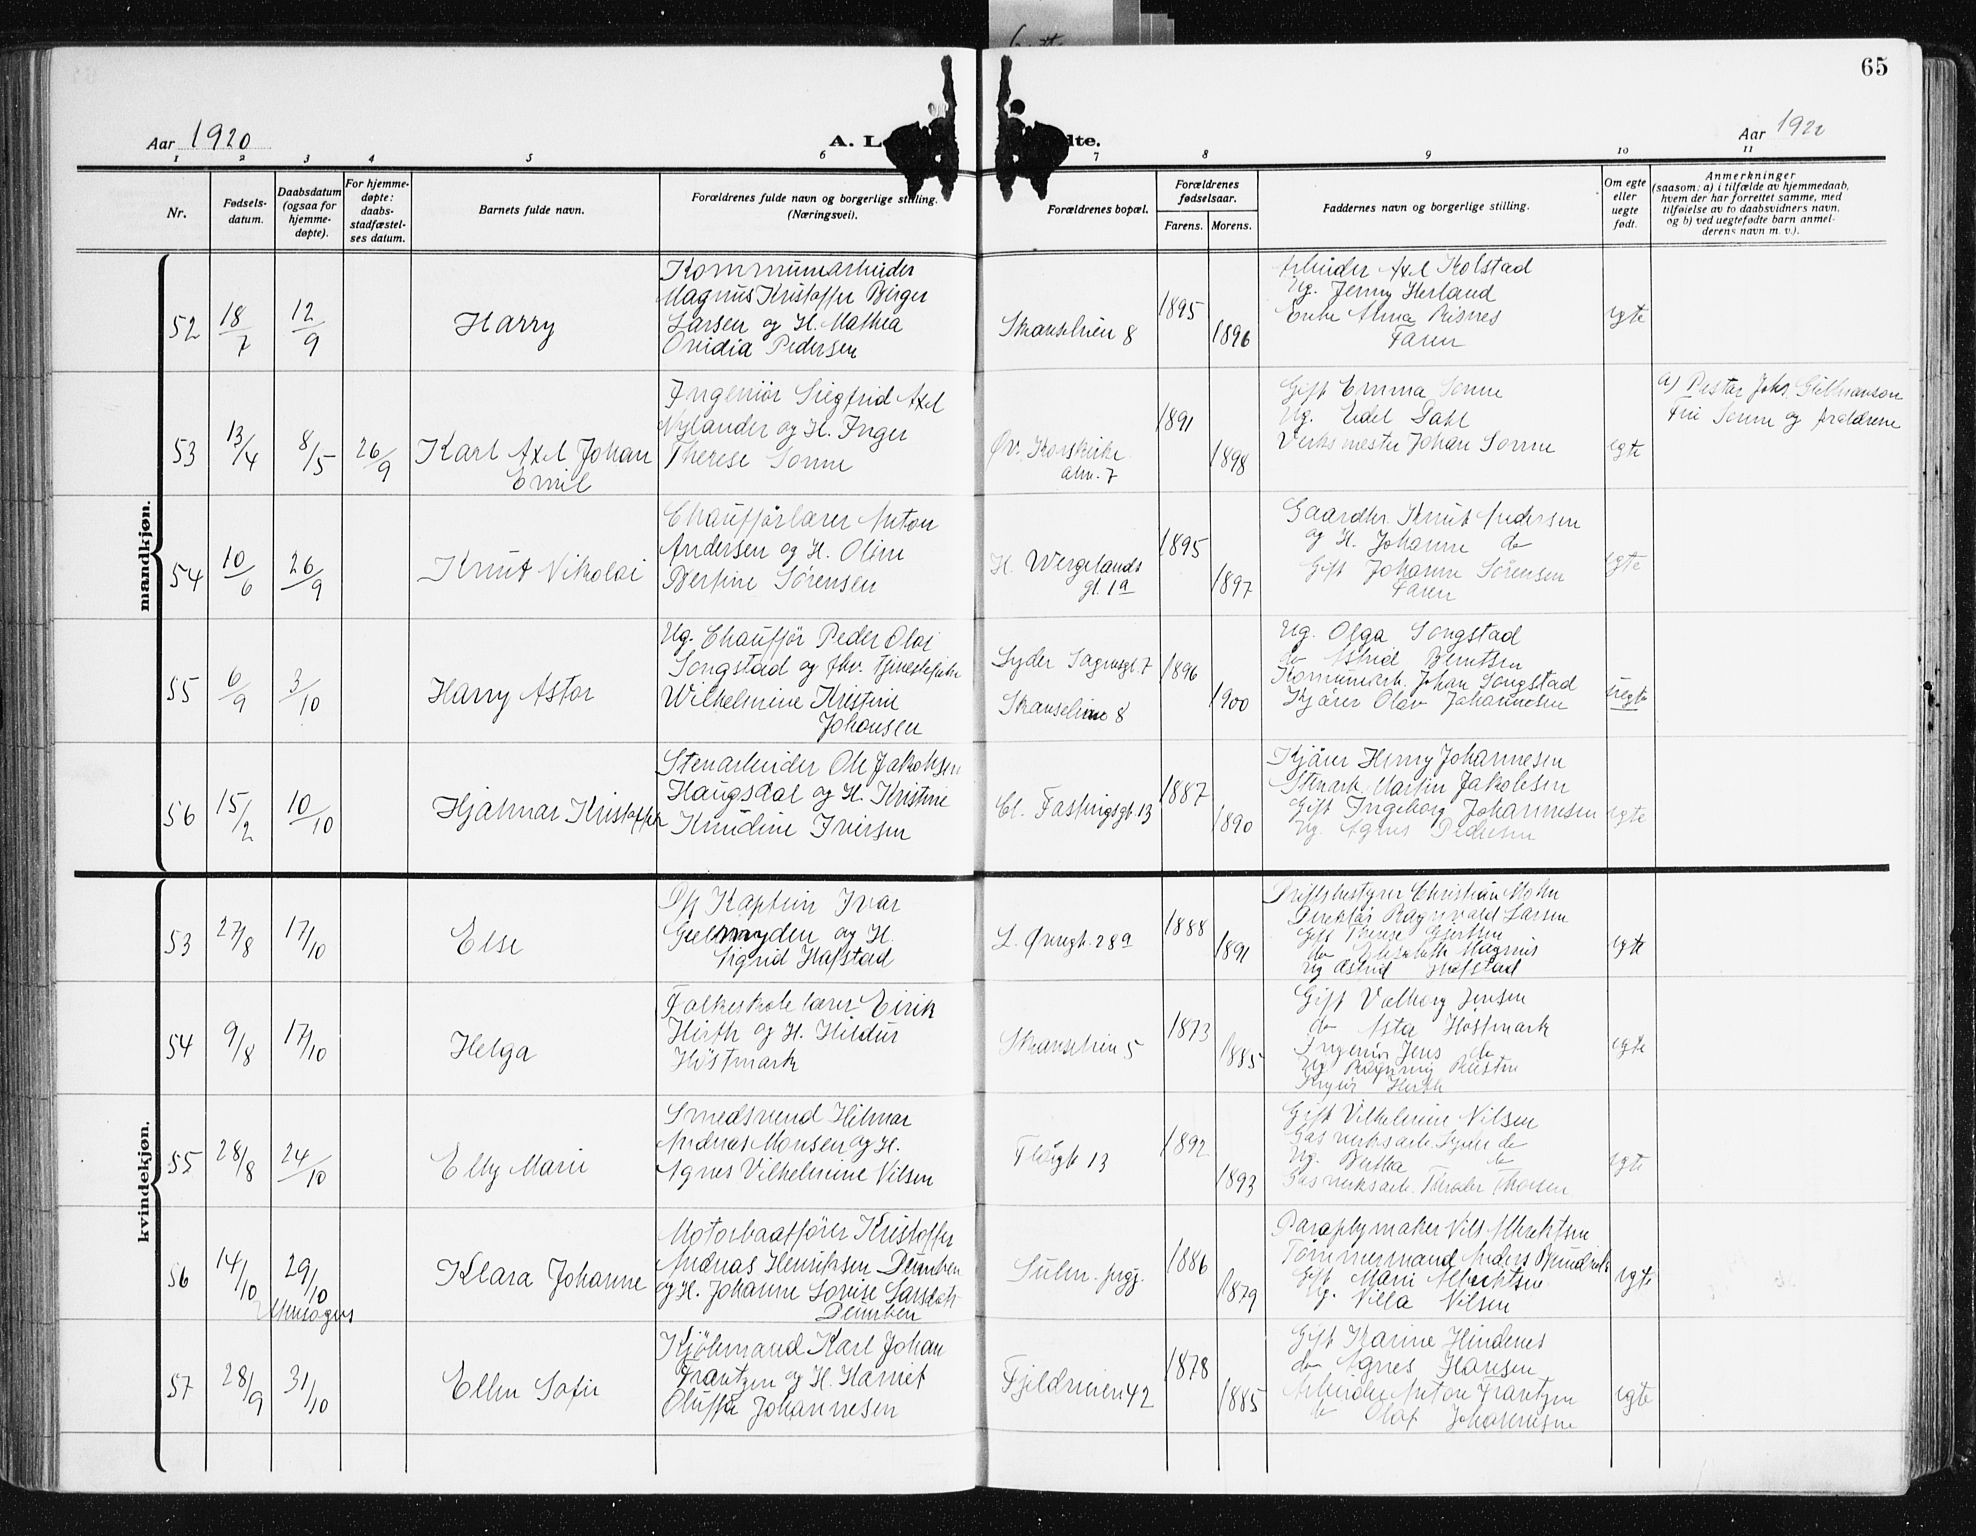 65
Aar 1920
A. L
dte.
Aar 1920
1 2 3 4 5 6 7 8 9 10 11
Nr.
Fødsels-
datum.
Daabsdatum
(ogsaa for
hjemme-
døpte).
For hjemme-
døpte:
daabs-
stadfæstel-
ses datum.
Barnets fulde navn.
Forældrenes fulde navn og borgerlige stilling.
(Næringsvei).
Forældrenes bopæl.
Forældrenes
fødselsaar.
Farens. Morens.
Faddernes navn og borgerlige stilling.
Om egte
eller
uegte
født.
Anmerkninger
(saasom: a) i tilfælde av hjemmedaab,
hvem der har forrettet samme, med
tilføielse av to daabsvidners navn,
og b) ved uegtefødte barn anmel-
derens navn m. v.).
mandkjøn.
52
18/7
12/9
Harry
Kommunearbeider
Magnus Kristoffer Birger
Larsen og H. Mathea
Ovidia Pedersen
Skanselien 8
1895
1896
Arbeider Axel Kolstad
Ug. Jenny Herland
Enke Alma Risnes
Faren
egte
53
13/4
8/5
26/9
Karl Axel Johan
Emil
Ingeniør Siegfrid Axel
Nylander og H. Inger
Therese Sonne
Øv. Korskirke
alm. 7
1891
1898
Gift Emma Sonne
Ug. Edel Dahl
Verksmester Johan Sonne
egte
a) Pastor Johs.
Fru Sonne og forældrene
54
10/6
26/9
Knut Nikolai
Chaufførlærer Anton
Andersen og H. Oline
Bertine Sørensen
H. Wergelands
gt. 1a
1895
1897
Gaardbr. Knut Andersen
og H. Johanne do
Gift Johanne Sørensen
Faren
egte
55
6/9
3/10
Harry Astor
Ug. Chauffør Peder Olai
Songstad og fhv. tjenestepike
Wilhelmine Kristine
Johansen
Lyder Sagensgt. 7
Skanselien 8
1896
1900
Ug. Olga Songstad
do Astrid Berntsen
Kommuneark. Johan Songstad
Kjører Olav Johannesen
uegte
56
15/2
10/10
Hjalmar Kristoffer
Stenarbeider Ole Jakobsen
Haugsdal og H. Kristine
Knudine Iversen
Cl. Fastingsgt. 13
1887
1890
Kjører Henry Johannesen
Stenarb. Martin Jakobsen
Gift Ingeborg Johannesen
Ug. Agnes Pedersen
egte
kvindekjøn.
53
27/8
17/10
Else
Kaptein Ivar
Gelmuyden og H.
Sigrid Hafstad
L. Øvregt. 28a
1888
1891
Driftsbestyrer Christian Mohn
Direktør Ragnvald Larsen
Gift Gjertsen
do Elisabeth Magnus
Ug Astrid Hafstad
egte
54
9/8
17/10
Helga
Folkeskolelærer Eirik
Hirth og H. Hildur
Høstmark
Skanselien 5
1873
1885
Gift Valborg Jensen
do Asta Høstmark
Ingeniør Jens do
Ug
Hirth
egte
55
28/8
24/10
Elly Marie
Smedsvend Hilmar
Andreas Monsen og H.
Agnes Vilhelmine Nilsen
Fløigt 13
1892
1893
Gift Vilhelmine Nilsen
Gasverksarb. do
Ug. Bertha do
Gasverksarb. Thoesen
egte
56
14/10
29/10
Klara Johanne
Motorbaatfører Kristoffer
Andreas Henriksen
og H. Johanne Lovise Larsdatt.
1886
1879
Paraplymaker Nils Albrektsen
Tømmermand Anders
Gift Marie Albrektsen
Ug. Villa Nilsen
egte
57
28/9
31/10
Ellen Sofie
Kjølemand Karl Johan
Frantzen og H. Harriet
Oluffa Johannesen
Fjeldveien 42
1878
1885
Gift Karine Hindenes
do Agnes Hansen
Arbeider Anton Frantzen
do Olaf Johannesen
egte